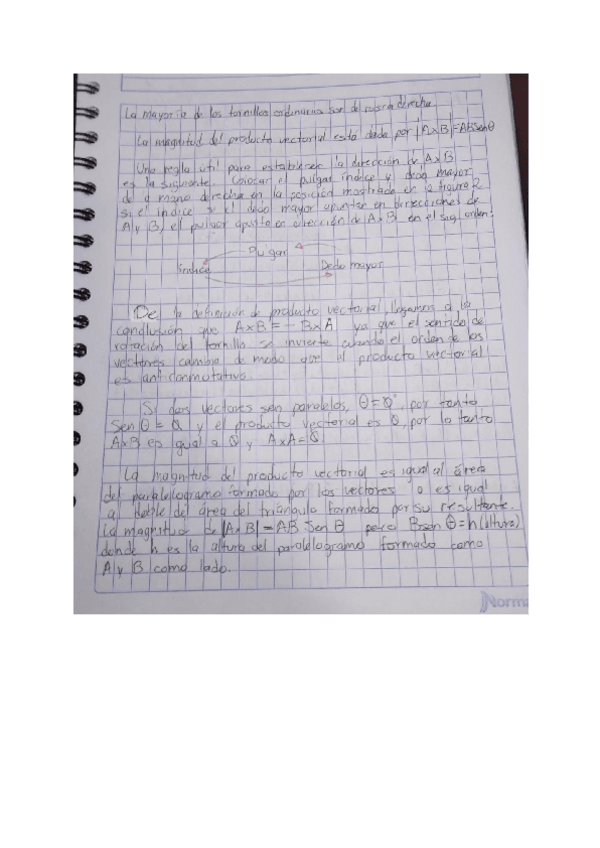 La mayoría de los tornillos ordinarios son de rosca derecha.
La magnitud del producto vectorial está dado por |AxB|=ABSenθ
Una regla útil para establecer la dirección de AxB
es la siguiente. Colocar el pulgar, índice y dedo mayor
de mano derecha en la posición mostrada en la figura 2
si el índice y el dedo mayor apuntan en direcciones de
A y B, el pulgar apunta en dirección de AxB en el sig orden:
Pulgar
Índice Dedo mayor
De la definición de producto vectorial, llegamos a la
conclusión que AxB=-BxA ya que el sentido de
rotación del tornillo se invierte cuando el orden de los
vectores cambia de modo que el producto vectorial
es anticonmutativo.
Si dos vectores son paralelos, θ=0°, por tanto
Sen θ = 0 y el producto vectorial es 0, por lo tanto
AxB es igual a 0 y AxA=0
La magnitud del producto vectorial es igual al área
del paralelogramo formado por los vectores o es igual
al doble del área del triángulo formado por su resultante.
La magnitud de |AxB|=AB Sen θ pero Bsen θ=h(altura)
donde h es la altura del paralelogramo formado como
A y B como lado.
Norma